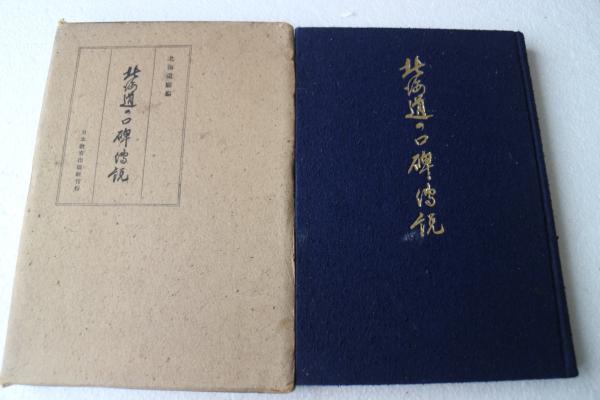 北海道廳編
北海道の口碑傳説
日本教育出版社刊行
北海道の口碑傳説